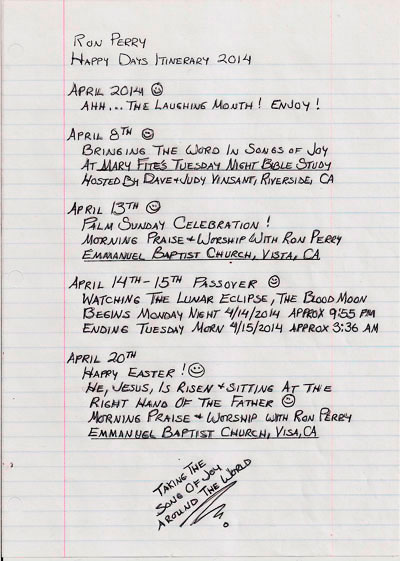 RON PERRY
HAPPY DAYS ITINERARY 2014
APRIL 2014 ☺
AHH... THE LAUGHING MONTH! ENJOY!
APRIL 8TH ☺
BRINGING THE WORD IN SONGS OF JOY
AT MARY FITE'S TUESDAY NIGHT BIBLE STUDY
HOSTED BY DAVE + JUDY VINSANT, RIVERSIDE, CA
APRIL 13TH ☺
PALM SUNDAY CELEBRATION!
MORNING PRAISE + WORSHIP WITH RON PERRY
EMMANUEL BAPTIST CHURCH, VISTA, CA
APRIL 14TH - 15TH PASSOVER ☺
WATCHING THE LUNAR ECLIPSE, THE BLOOD MOON
BEGINS MONDAY NIGHT 4/14/2014 APPROX 9:55 PM
ENDING TUESDAY MORN 4/15/2014 APPROX 3:36 AM
APRIL 20TH
HAPPY EASTER! ☺
HE, JESUS, IS RISEN + SITTING AT THE
RIGHT HAND OF THE FATHER ☺
MORNING PRAISE + WORSHIP WITH RON PERRY
EMMANUEL BAPTIST CHURCH, VISA, CA
TAKING THE
SONG OF JOY
AROUND THE WORLD